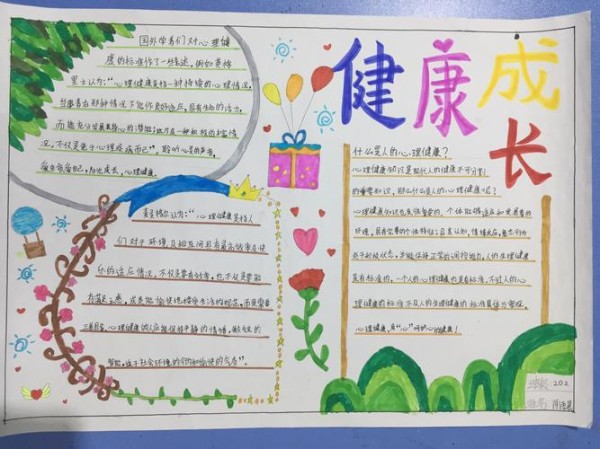 健康成长
国外学者们对心理健
康的标准作了一些表述，例如英格
里士认为：“心理健康是指一种持续的心理情况，
当事者在那种情况下能作良好适应，具有生命的活力，
而能充分发展其身心的潜能；这乃是一种积极的丰富情
况，不仅是免于心理疾病而已”。聆听心灵的声音，
麦灵格尔认为：“心理健康是指人
们对于环境及相互间具有最高效率及快
乐的适应情况。不仅是要有效率，也不仅是要能
有满足之感，或是能愉快地接受生活的规范，而是需要
三者具备。心理健康的人应能保持平静的情绪，敏锐的
智能，适于社会环境的行为和愉快的气质”。
什么是人的心理健康？
心理健康知识是现代人的健康不可分割
的重要知识，那么什么是人的心理健康呢？
环境，具有完善的个性特征；且其认知，情绪反应，意志行为
处于积极状态，并能保持正常的调控能力。人的生理健康
是有标准的，一个人的心理健康也是有标准的。不过人的心
理健康的标准不及人的生理健康的标准具体与客观。
心理健康，用“心”呵护心的健康！
班级 202
姓名